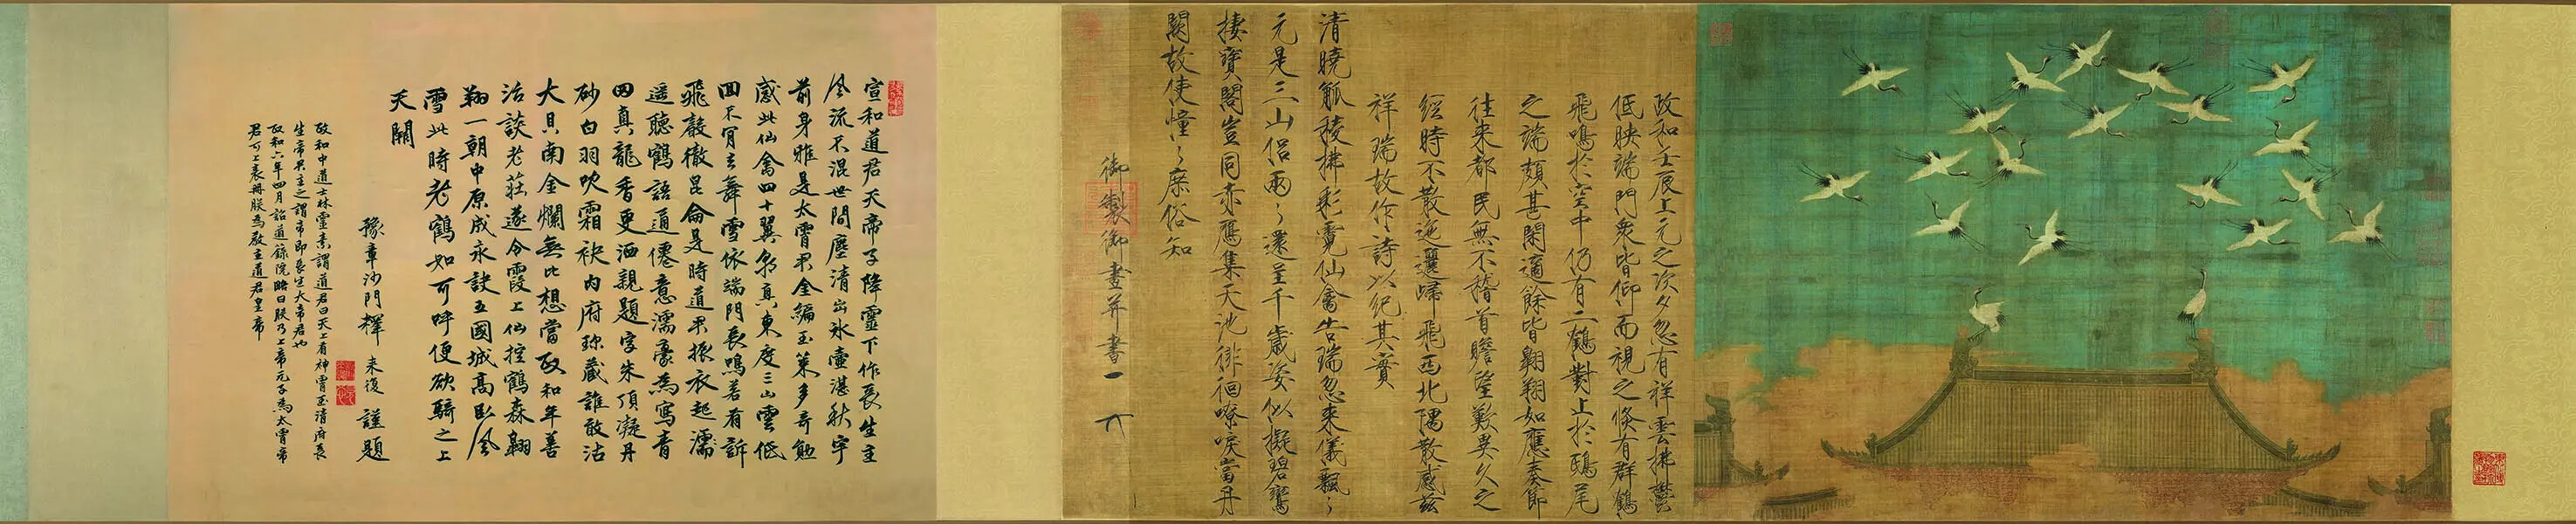 政和壬辰上元之次夕忽有祥雲拂鬱
低映端門衆皆仰而視之倏有群鶴
飛鳴於空中仍有二鶴對止於鴟尾
之端頗甚閑適餘皆翱翔如應奏節
往來都民無不稽首瞻望歎異久之
經時不散迤邐歸飛西北隅散感茲
祥瑞故作詩以紀其實
清曉觚稜拂彩霓仙禽告瑞忽來儀飄〻
元是三山侶兩〻還呈千歲姿似擬碧鸞
棲寶閣豈同赤鴈集天池徘徊嘹唳當丹
闕故使憧〻庶俗知
御製御畫并書
宣和道君天帝子降靈下作長生主
風流不混世間塵清出氷壺湛秋宇
前身雅是太霄君金編玉策多奇勲
感此仙禽四十翼朝真東度三山雲低
回不肯去舞雪依端門長鳴若有訴
飛聲徹昆侖是時道君振衣起濡
遥聽鶴語通僊意濡毫為寫青
田真龍香更洒親題字朱頂凝丹
砂白羽吹霜袂内府珎藏誰敢沽
大貝南金爛無比想當政和年善
治談老莊遂令霞上仙控鶴森翱
翔一朝中原成永訣五國城高臥風
雪此時老鶴如可呼便欲騎之上
天關
豫章沙門釋 来復 謹題
政和中道士林靈素謂道君曰天上有神霄玉清府長
生帝君主之謂帝即長生大帝君也
政和六年四月詔道籙院略曰朕乃上帝元子為太霄帝
君可上表冊朕為教主道君皇帝